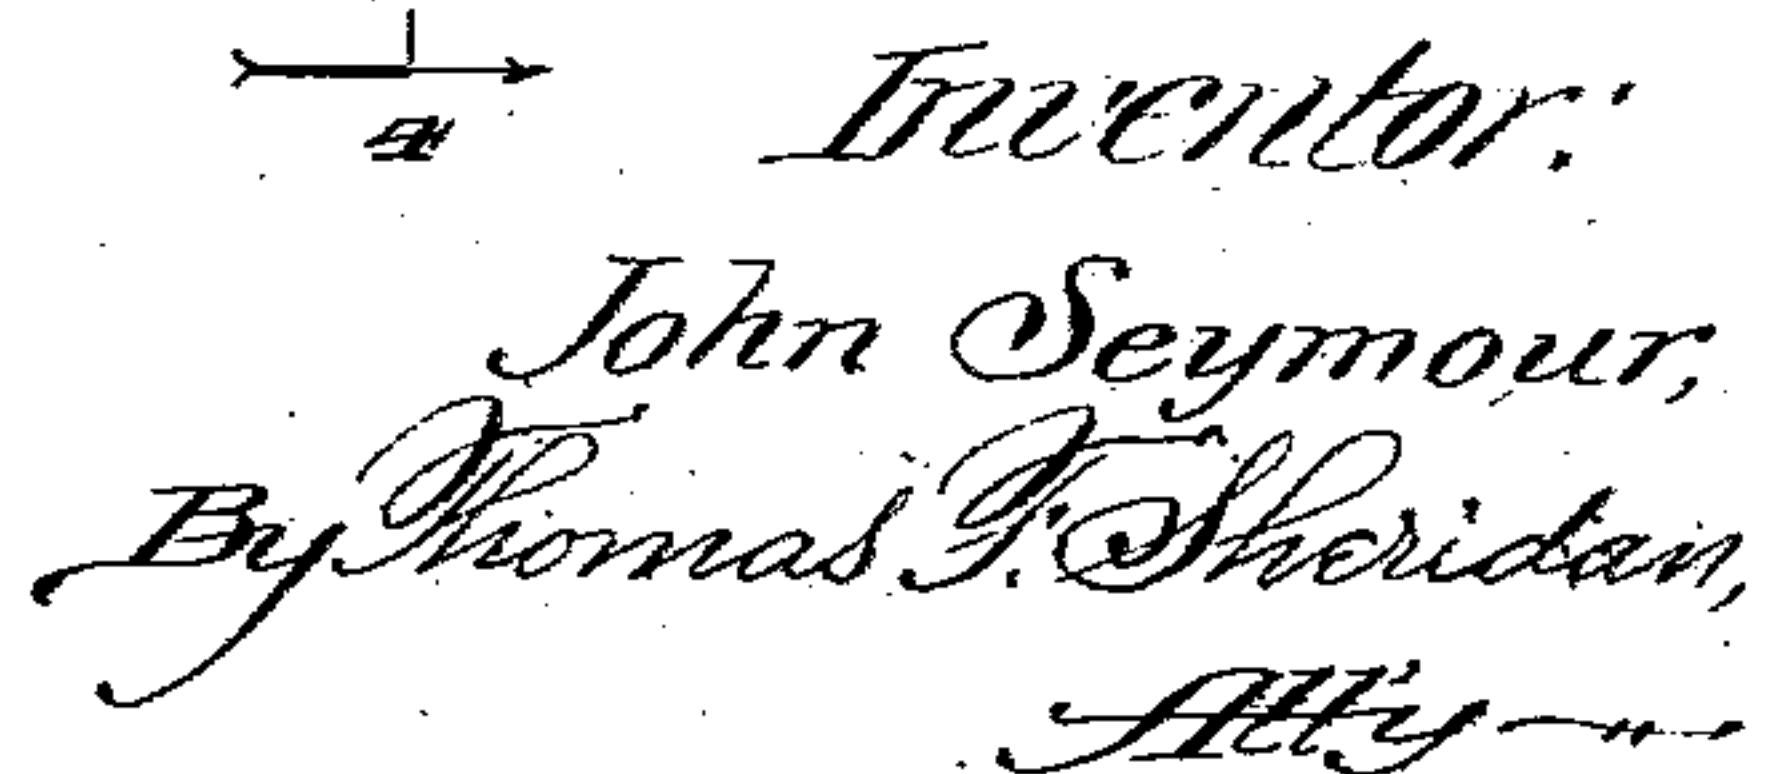 4
Inventor:
John Seymour,
By Thomas F. Sheridan,
Att'y